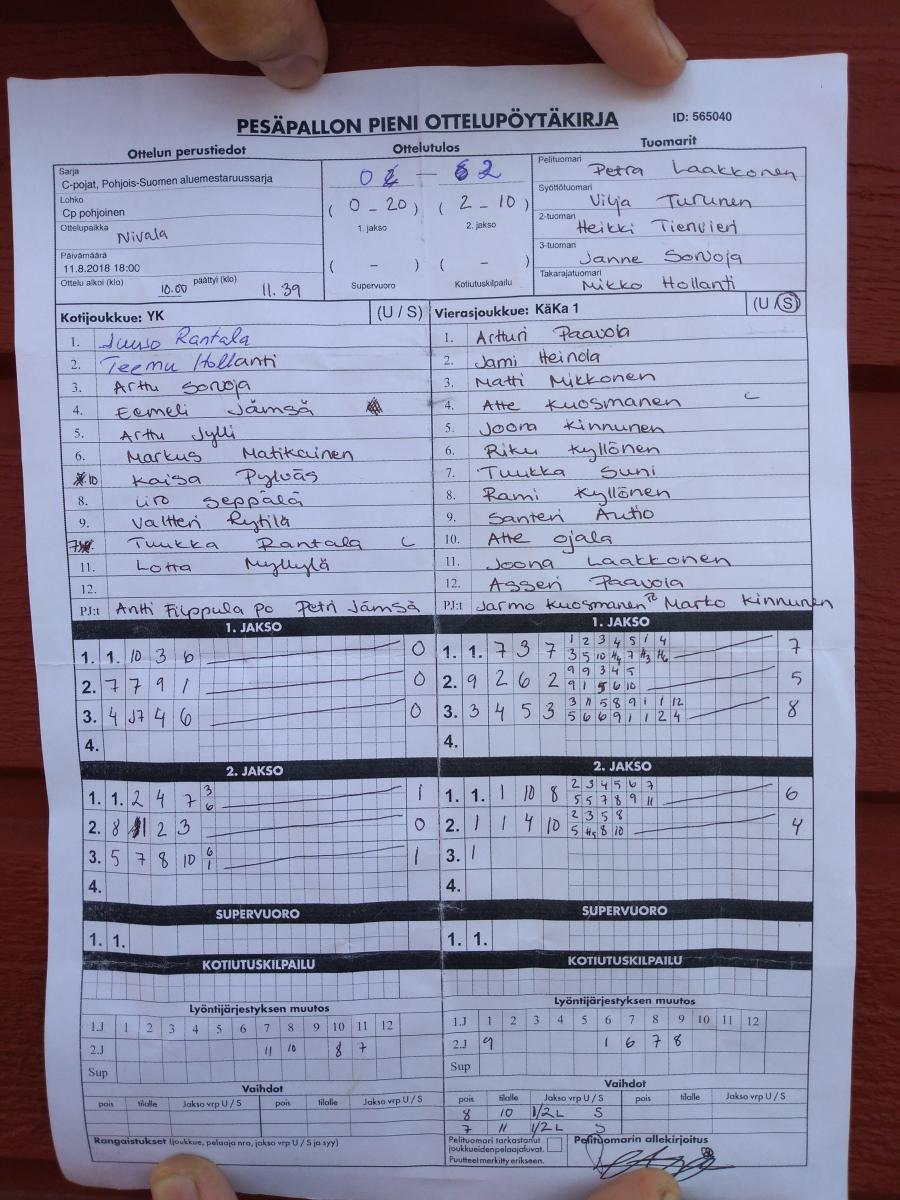 PESÄPALLON PIENI OTTELUPÖYTÄKIRJA ID: 565040
Ottelun perustiedot Ottelutulos Tuomarit
Sarja
C-pojat, Pohjois-Suomen aluemestaruussarja
Lohko
Cp pohjoinen
Ottelupaikka
Nivala
Päivämäärä
11.8.2018 18:00
Ottelu alkoi (klo) 10.00 päättyi (klo) 11.39
0 — 2
( 0 - 20 ) ( 2 - 10 )
1. jakso 2. jakso
( - ) ( - )
Supervuoro Kotiutuskilpailu
Pelituomari
Petra Laakkonen
Syöttötuomari
Vilja Turunen
2-tuomari
Heikki Tienvieri
3-tuomari
Janne Sorvoja
Takarajatuomari
Mikko Hollanti
Kotijoukkue: YK (U / S)
1. Juuso Rantala
2. Teemu Hollanti
3. Arttu Sorvoja
4. Eemeli Jämsä
5. Arttu Jylli
6. Markus Matikainen
10 Kaisa Pylväs
8. Iiro Seppälä
9. Valtteri Rytilä
7 Tuukka Rantala C
11. Lotta Myllylä
12.
PJ:t Antti Filppula PO Petri Jämsä
Vierasjoukkue: KäKa 1 (U / S)
1. Artturi Paavola
2. Jami Heinola
3. Matti Mikkonen
4. Atte Kuosmanen C
5. Joona Kinnunen
6. Riku Kyllönen
7. Tuukka Suni
8. Rami Kyllönen
9. Santeri Autio
10. Atte Ojala
11. Joona Laakkonen
12. Asseri Paavola
PJ:t Jarmo Kuosmanen Marko Kinnunen
1. JAKSO
1. 1. 10 3 6 0
2. 7 7 9 1 0
3. 4 J7 4 6 0
4.
1. JAKSO
1 2 3 4 5 1 4
1. 1. 7 3 7 7
3 5 10 H4 7 H3 H6
9 9 3 4 5
2. 9 2 6 2 5
9 1 5 6 10
3 11 5 8 9 1 1 12
3. 3 4 5 3 8
5 6 6 9 1 1 2 4
4.
2. JAKSO
3
1. 1. 2 4 7 1
6
2. 8 1 2 3 0
6
3. 5 7 8 10 1
1
4.
2. JAKSO
2 3 4 5 6 7
1. 1. 1 10 8 6
5 5 7 8 9 11
2 3 5 8
2. 1 1 4 10 4
5 H5 8 10
3. 1
4.
SUPERVUORO
1. 1.
SUPERVUORO
1. 1.
KOTIUTUSKILPAILU
KOTIUTUSKILPAILU
Lyöntijärjestyksen muutos
1.J 1 2 3 4 5 6 7 8 9 10 11 12
2.J 11 10 8 7
Sup
Lyöntijärjestyksen muutos
1.J 1 2 3 4 5 6 7 8 9 10 11 12
2.J 9 1 6 7 8
Sup
Vaihdot
pois tilalle Jakso vrp U / S pois tilalle Jakso vrp U / S
Vaihdot
pois tilalle Jakso vrp U / S pois tilalle Jakso vrp U / S
8 10 1/2 L S
7 11 1/2 L S
Rangaistukset (joukkue, pelaaja nro, jakso vrp U / S ja syy)
Pelituomari tarkastanut
joukkueidenpelaajaluvat.
Puutteet merkitty erikseen.
Pelituomarin allekirjoitus